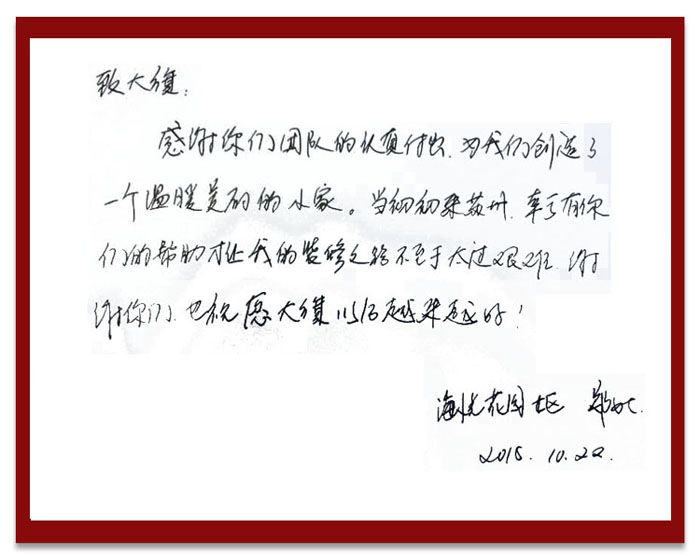 致大维:
感谢你们团队的认真付出,为我们创造了
一个温暖美丽的小家。当初初来苏州,幸亏有你
们的帮助才让我的装修之路不至于太过艰难,谢
谢你们,也祝愿大维以后越来越好!
花园 郑
2015.10.22.